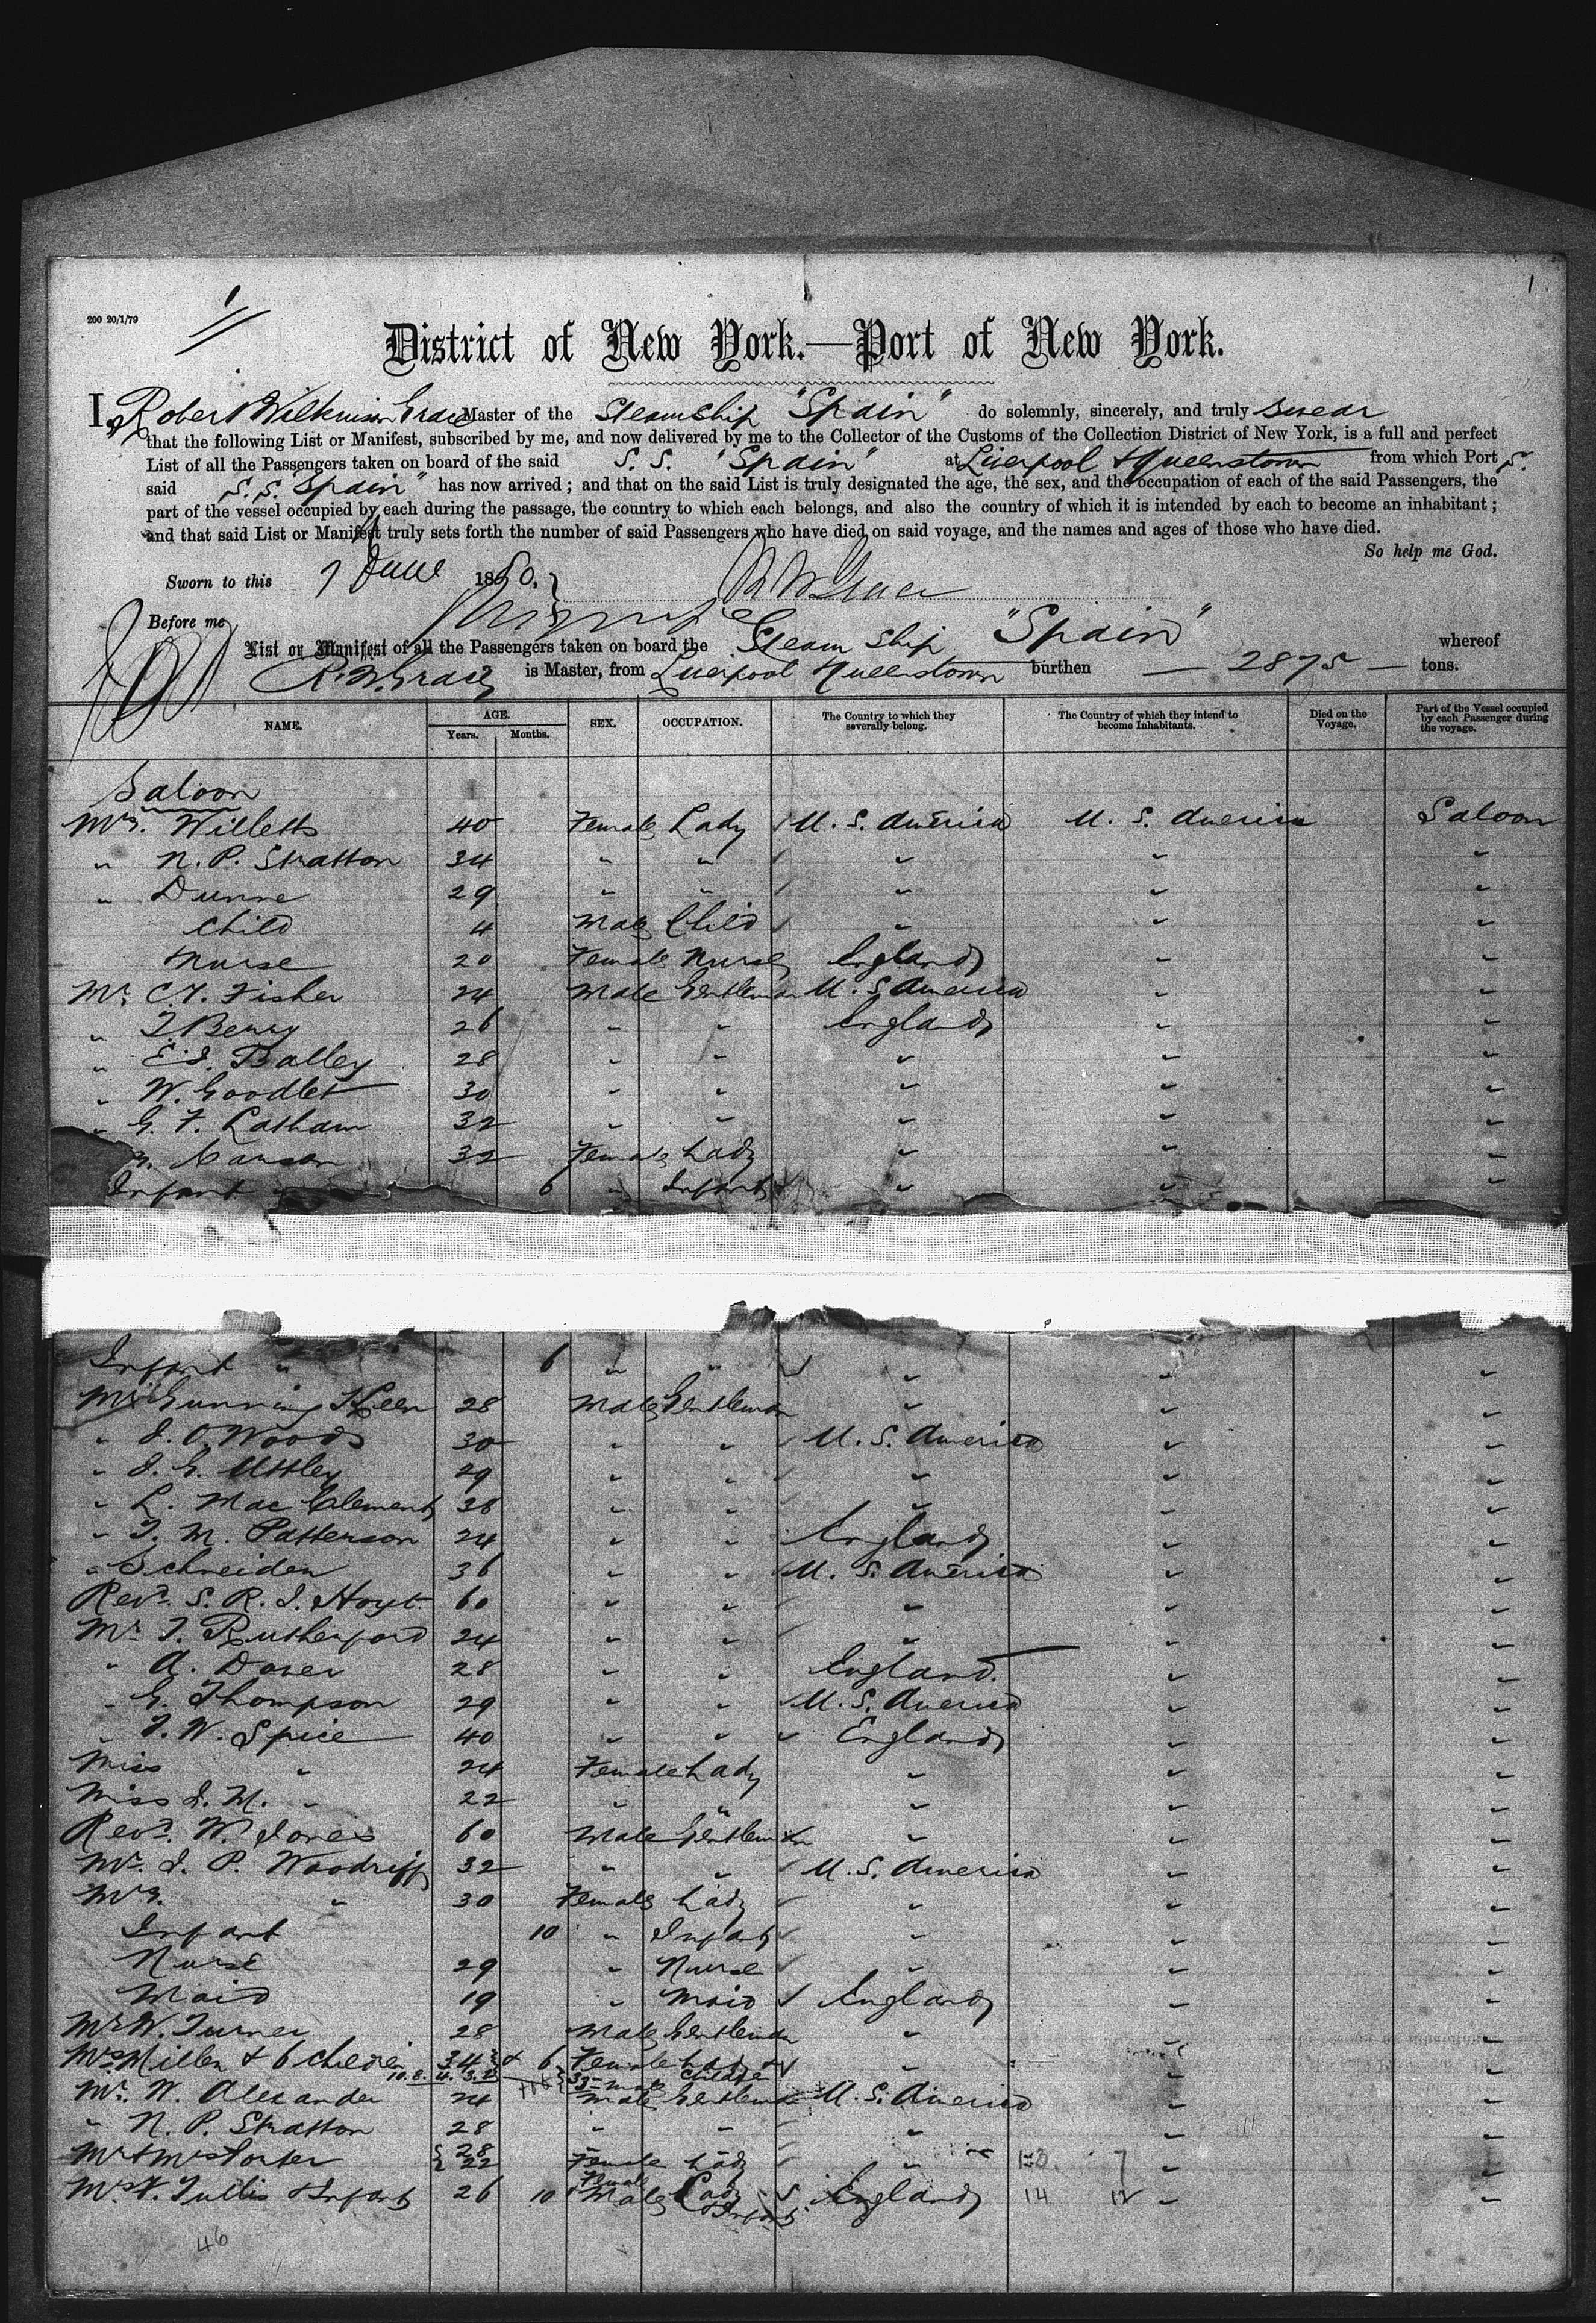 1
1
200 20/1/79
District of New York.—Port of New York.
I, Robert Wilkinson Grace Master of the Steamship "Spain" do solemnly, sincerely, and truly swear
that the following List or Manifest, subscribed by me, and now delivered by me to the Collector of the Customs of the Collection District of New York, is a full and perfect
List of all the Passengers taken on board of the said S. S. "Spain" at Liverpool & Queenstown from which Port S.
said S. S. "Spain" has now arrived; and that on the said List is truly designated the age, the sex, and the occupation of each of the said Passengers, the
part of the vessel occupied by each during the passage, the country to which each belongs, and also the country of which it is intended by each to become an inhabitant;
and that said List or Manifest truly sets forth the number of said Passengers who have died on said voyage, and the names and ages of those who have died.
So help me God.
Sworn to this 7 June 1880. R W Grace
Before me
List or Manifest of all the Passengers taken on board the Steam Ship "Spain" whereof
R. W. Grace is Master, from Liverpool Queenstown burthen — 2875 — tons.
NAME. AGE. Years. Months. SEX. OCCUPATION. The Country to which they severally belong. The Country of which they intend to become Inhabitants. Died on the Voyage. Part of the Vessel occupied by each Passenger during the voyage.
Saloon
Mrs. Willetts 40 Female Lady U. S. America U. S. America Saloon
" N. P. Stratton 34 " " " " "
" Dunne 29 " " " " "
Child 4 Male Child " " "
Nurse 20 Female Nurse England " "
Mr. C. T. Fisher 24 Male Gentleman U. S. America " "
" T Berry 26 " " England " "
" E. J. Balley 28 " " " " "
" W. Goodlet 30 " " " " "
" G. F. Latham 32 " " " " "
Carson 32 Female Lady " " "
Infant " 6 " Infant " " "
Infant " 6 " " " " "
Mr Gunning Keen 28 Male Gentleman " " "
" J. O Woods 30 " " U. S. America " "
" J. G. Uttley 29 " " " " "
" L. Mac Clement 38 " " " " "
" T. M. Patterson 24 " " England " "
" Schneider 36 " " U. S. America " "
Revd. S. R. J. Hoyt 60 " " " " "
Mr. T. Rutherford 24 " " " " "
" A. Dover 28 " " England. " "
" G. Thompson 29 " " U. S. America " "
" T. W. Spice 40 " " England " "
Miss " 24 Female Lady " " "
Miss J. M. " 22 " " " " "
Revd. W. Jones 60 Male Gentleman " " "
Mr. J. P. Woodriff 32 " " U. S. America " "
Mrs. " 30 Female Lady " " "
Infant 10 " Infant " " "
Nurse 29 " Nurse " " "
Maid 19 " Maid England " "
Mr W. Turner 28 Male Gentleman " " "
Mrs Miller & 6 Children 34 & 6 Female Lady & " "
10. 8. 4. 3. 2 Childn
Mr. W. Alexander 24 Male Gentleman U. S. America " "
" N. P. Stratton 28 " " " " "
Mr & Mrs Porter 28 22 Female Lady " 7 " "
Mrs V. Tullis & Infant 26 10 Female Male Lady & Infant England 14 " "
46